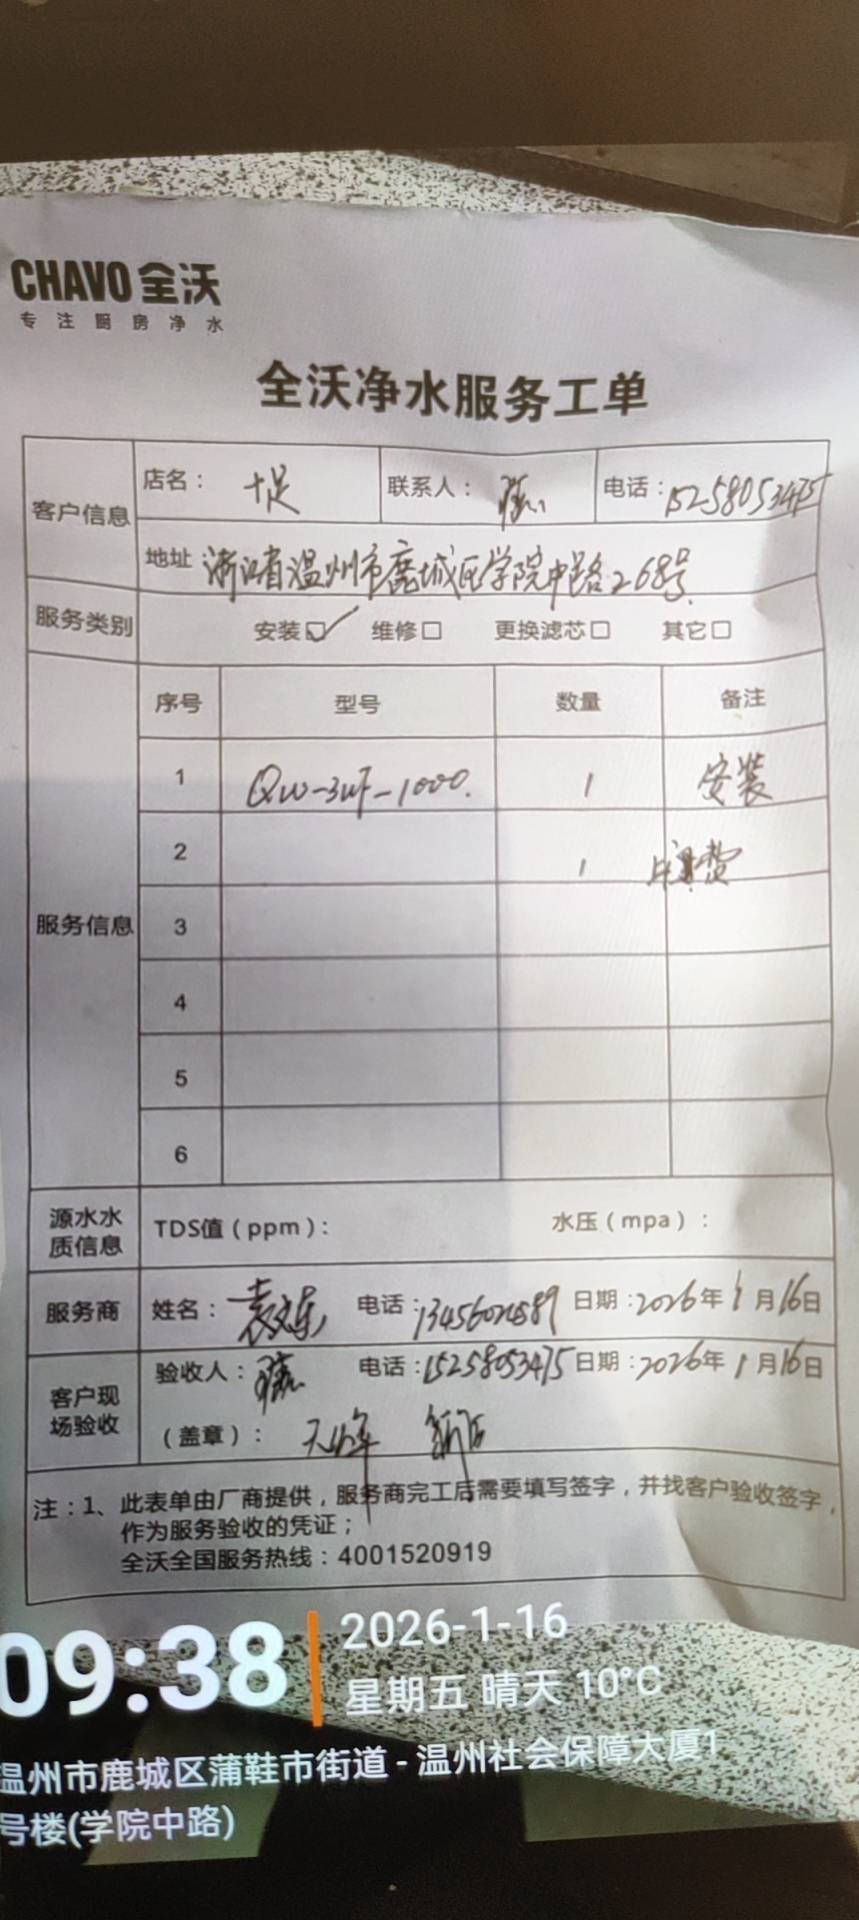 CHAVO 全沃
专注厨房净水
全沃净水服务工单
客户信息
店名：
联系人：
电话：15258053475
地址 浙江省温州市鹿城区学院中路268号
服务类别
安装☑ 维修□ 更换滤芯□ 其它□
服务信息
序号 型号 数量 备注
1 QW-3UF-1000 1 安装
2 1
3
4
5
6
源水水质信息
TDS值（ppm）： 水压（mpa）：
服务商
姓名：袁文东 电话： 日期：2026年1月16日
客户现场验收
验收人： 电话：15258053475 日期：2026年1月16日
（盖章）：
注：1、此表单由厂商提供，服务商完工后需要填写签字，并找客户验收签字，
作为服务验收的凭证；
全沃全国服务热线：4001520919
09:38
2026-1-16
星期五 晴天 10°C
温州市鹿城区蒲鞋市街道 - 温州社会保障大厦1
号楼(学院中路)